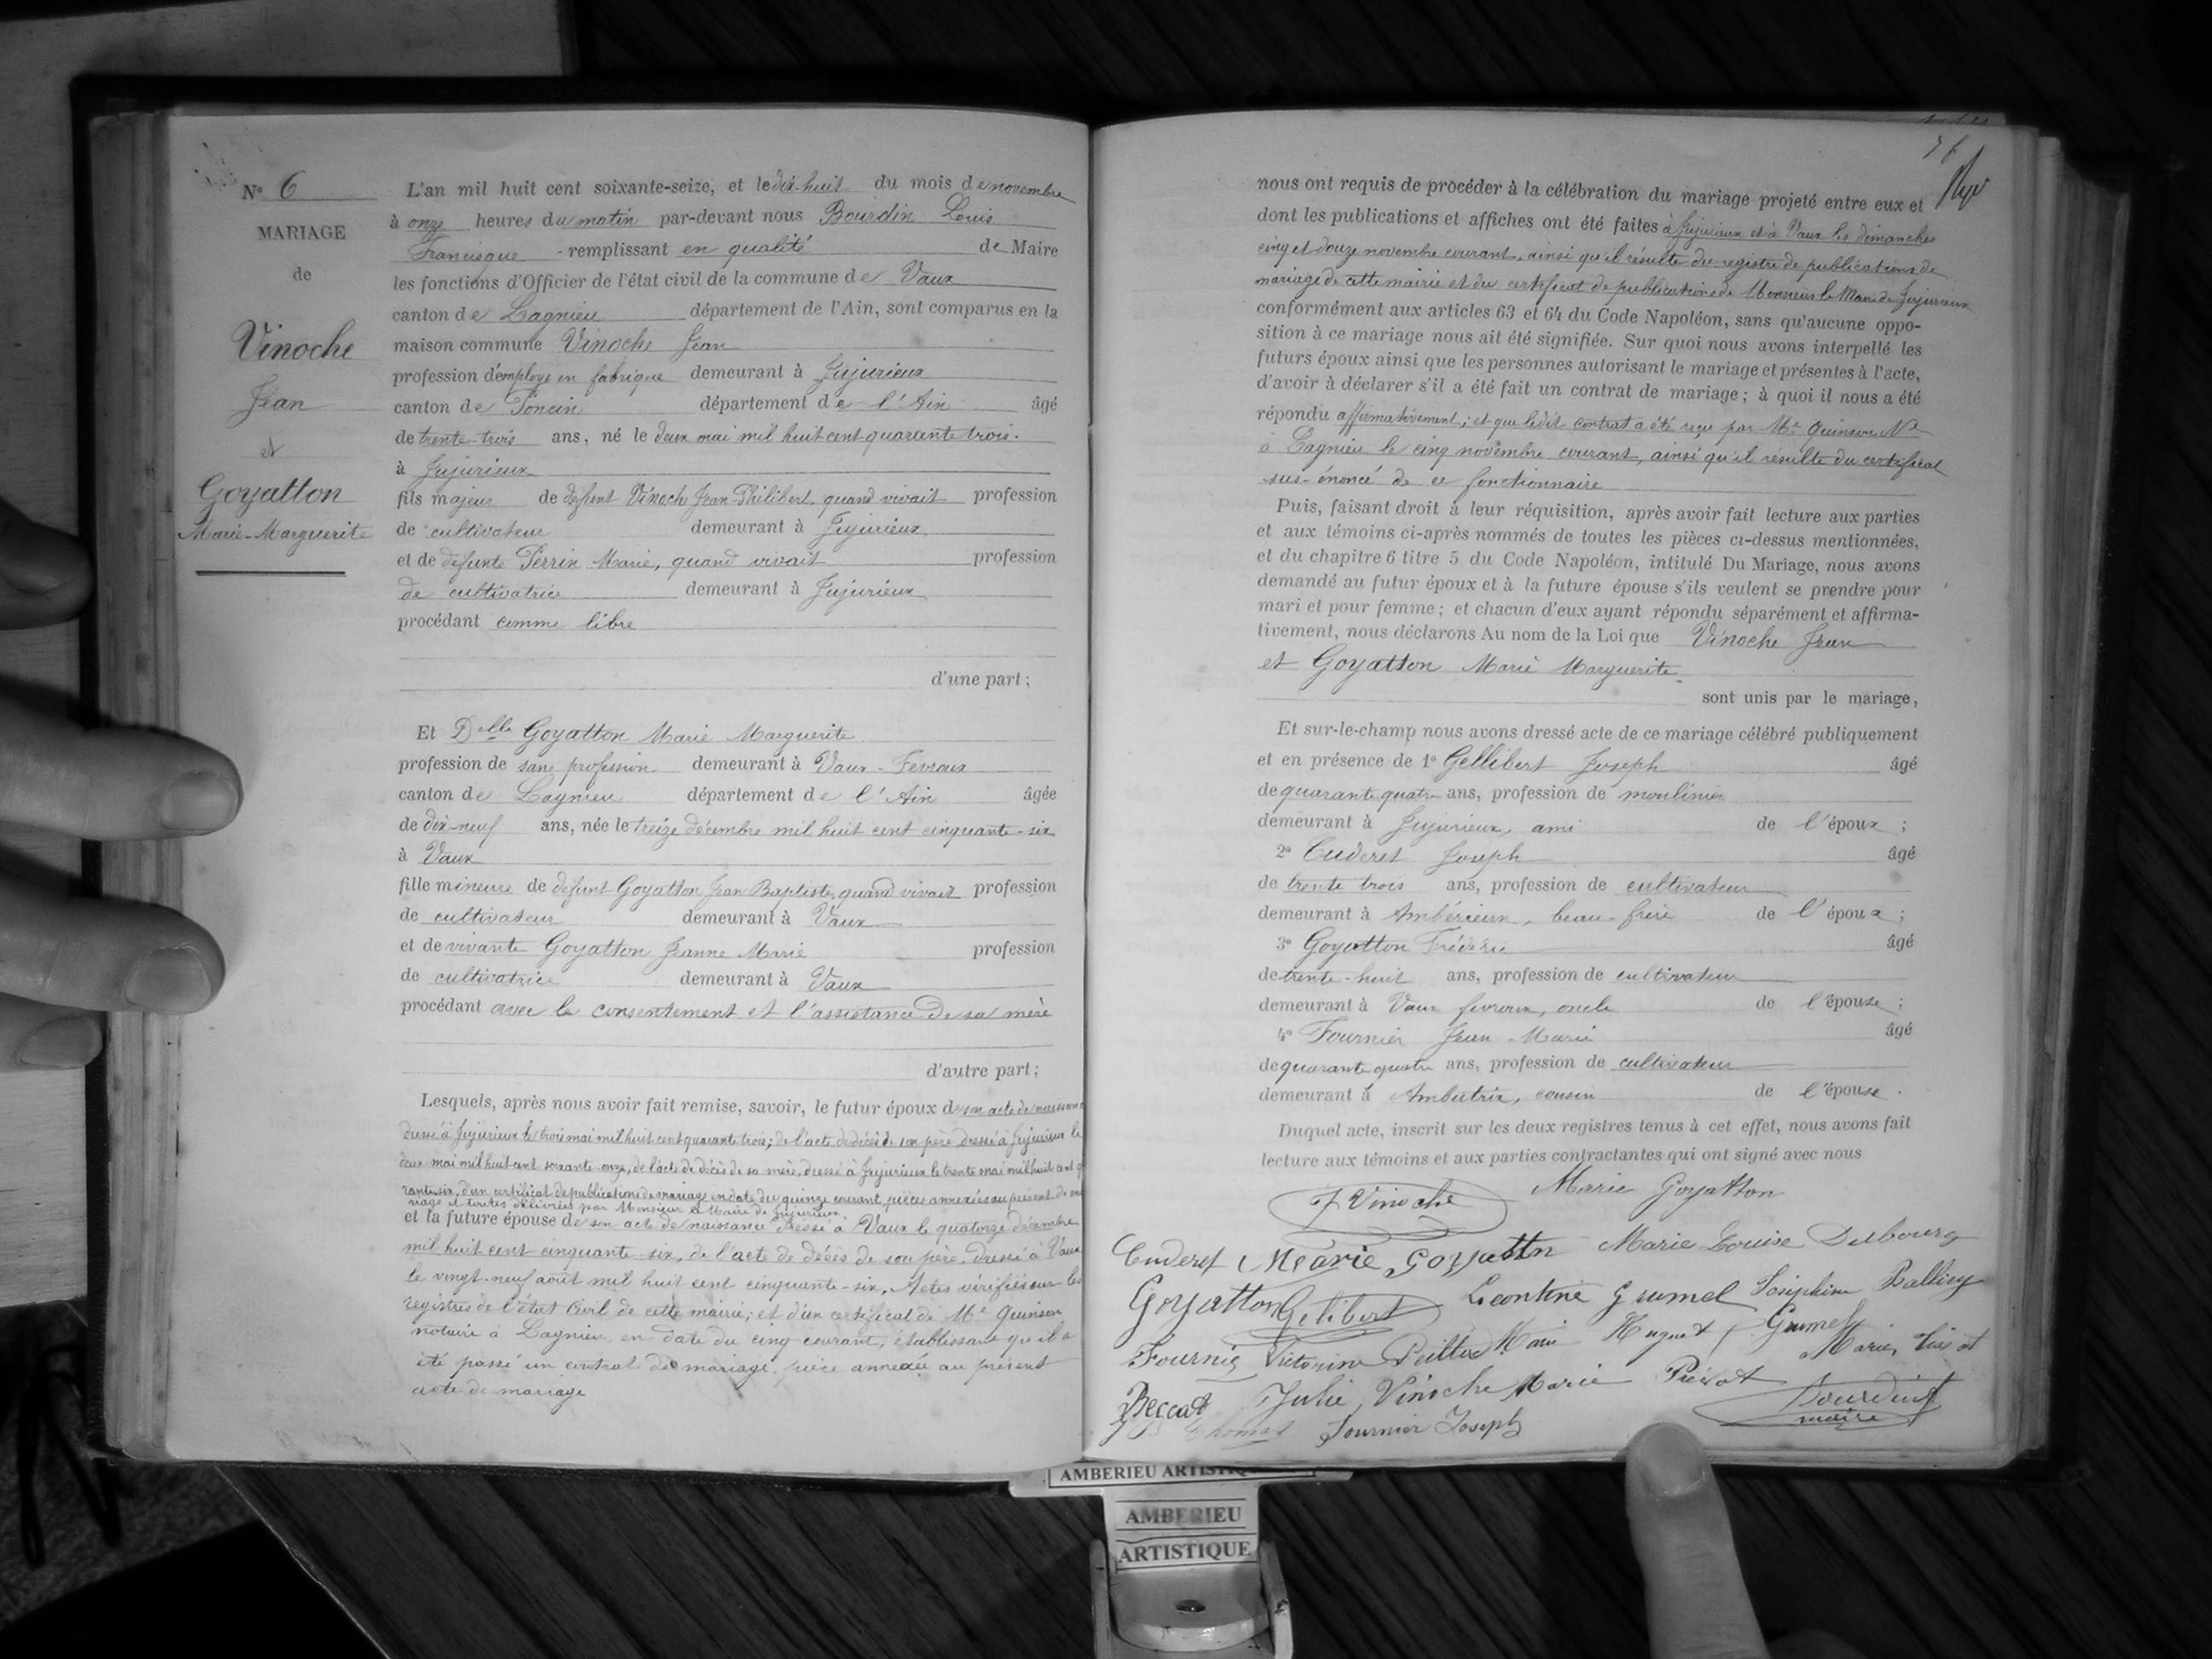 N° 6
MARIAGE
de
Vinoche
Jean
et
Goyatton
Marie-Marguerite
L'an mil huit cent soixante-seize, et le dix-huit du mois de novembre
à onze heures du matin par-devant nous Bourdin Louis
Francisque - remplissant en qualité de Maire
les fonctions d'Officier de l'état civil de la commune de Vaux
canton de Lagnieu département de l'Ain, sont comparus en la
maison commune Vinoche Jean
profession d'employé en fabrique demeurant à Jujurieux
canton de Poncin département de l'Ain âgé
de trente-trois ans, né le deux mai mil huit cent quarante trois.
à Jujurieux
fils majeur de défunt Vinoche Jean Philibert, quand vivait profession
de cultivateur demeurant à Jujurieux
et de défunte Perrin Marie, quand vivait profession
de cultivatrice demeurant à Jujurieux
procédant comme libre
d'une part ;
Et Delle Goyatton Marie Marguerite
profession de sans profession demeurant à Vaux-Fevroux
canton de Lagnieu département de l'Ain âgée
de dix-neuf ans, née le treize décembre mil huit cent cinquante-six
à Vaux
fille mineure de défunt Goyatton Jean Baptiste, quand vivait profession
de cultivateur demeurant à Vaux
et de vivante Goyatton Jeanne Marie profession
de cultivatrice demeurant à Vaux
procédant avec le consentement et l'assistance de sa mère
d'autre part ;
Lesquels, après nous avoir fait remise, savoir, le futur époux de son acte de naissance
dressé à Jujurieux le trois mai mil huit cent quarante trois; de l'acte de décès de son père, dressé à Jujurieux le
deux mai mil huit cent soixante-onze, de l'acte de décès de sa mère, dressé à Jujurieux le trente mai mil huit cent
rante six, d'un certificat de publications de mariage en date du quinze courant, pièces annexées au présent de ma
riage et toutes délivrées par Monsieur le Maire de Jujurieux
et la future épouse de son acte de naissance dressé à Vaux le quatorze décembre
mil huit cent cinquante-six, de l'acte de décès de son père, dressé à Vaux
le vingt-neuf août mil huit cent cinquante-six. Actes vérifiés sur les
registres de l'état civil de cette mairie; et d'un certificat de Me Quinson
notaire à Lagnieu, en date du cinq courant, établissant qu'il a
été passé un contrat de mariage, pièce annexée au présent
acte de mariage
nous ont requis de procéder à la célébration du mariage projeté entre eux et
dont les publications et affiches ont été faites à Jujurieux et à Vaux les dimanches
cinq et douze novembre courant, ainsi qu'il résulte du registre de publications de
mariage de cette mairie et du certificat de publications de Monsieur le Maire de Jujurieux
conformément aux articles 63 et 64 du Code Napoléon, sans qu'aucune oppo-
sition à ce mariage nous ait été signifiée. Sur quoi nous avons interpellé les
futurs époux ainsi que les personnes autorisant le mariage et présentes à l'acte,
d'avoir à déclarer s'il a été fait un contrat de mariage ; à quoi il nous a été
répondu affirmativement; et que ledit contrat a été reçu par Me Quinson Nre
à Lagnieu le cinq novembre courant, ainsi qu'il résulte du certificat
sus-énoncé de ce fonctionnaire
Puis, faisant droit à leur réquisition, après avoir fait lecture aux parties
et aux témoins ci-après nommés de toutes les pièces ci-dessus mentionnées,
et du chapitre 6 titre 5 du Code Napoléon, intitulé Du Mariage, nous avons
demandé au futur époux et à la future épouse s'ils veulent se prendre pour
mari et pour femme ; et chacun d'eux ayant répondu séparément et affirma-
tivement, nous déclarons Au nom de la Loi que Vinoche Jean
et Goyatton Marie Marguerite
sont unis par le mariage,
Et sur-le-champ nous avons dressé acte de ce mariage célébré publiquement
et en présence de 1° Gellibert Joseph âgé
de quarante quatre ans, profession de moulinier
demeurant à Jujurieux, ami de l'époux ;
2° Cuderet Joseph âgé
de trente trois ans, profession de cultivateur
demeurant à Ambérieux, beau-frère de l'époux ;
3° Goyatton Frédéric âgé
de trente-huit ans, profession de cultivateur
demeurant à Vaux fevroux, oncle de l'épouse ;
4° Fournier Jean-Marie âgé
de quarante quatre ans, profession de cultivateur
demeurant à Ambutrix, cousin de l'épouse.
Duquel acte, inscrit sur les deux registres tenus à cet effet, nous avons fait
lecture aux témoins et aux parties contractantes qui ont signé avec nous
J Vinoche Marie Goyatton
Cuderet Marie Goyattn Marie Louise Delbourg
Goyatton Gelibert Leontine Grumel Joséphine Ballivy
Fournier Victorine Peillex Marie Huguet Grumel Marie
Beccat Julie Vinoche Marie Prévot Bourdin
maire
Thomas Fournier Joseph
AMBERIEU
AMBERIEU
ARTISTIQUE